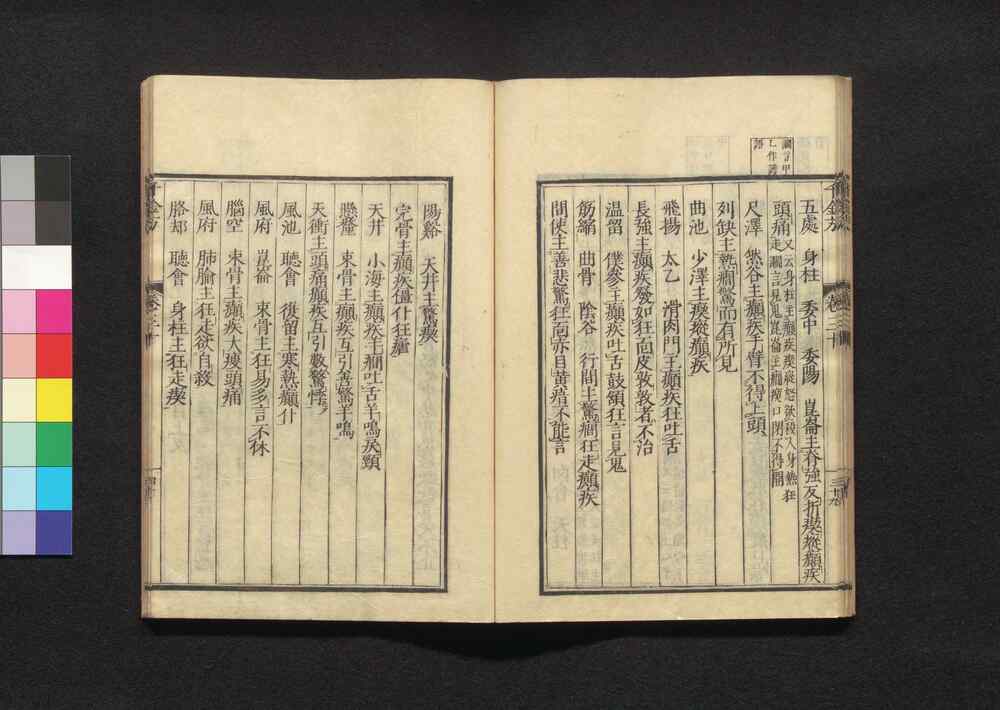 五處　身柱　委中　委陽　崑崙主脊強反折瘈瘲癲疾
頭痛又云身柱主癲疾瘈瘲怒欲殺人身熱狂走讝言見鬼崑崙主癇瘈口閉不得開
尺澤　然谷主癲疾手臂不得上頭
列缺主熱癇驚而有所見
曲池　少澤主瘈瘲癲疾
飛揚　太乙　滑肉門主癲疾狂吐舌
長強主癲疾發如狂面皮敦敦者不治
溫留　僕參主癲疾吐舌鼓頷狂言見鬼
筋縮　曲骨　陰谷　行間主驚癇狂走癲疾
間使主善悲驚狂面赤目黃瘖不能言
陽谿　天井主驚瘈
完骨主癲疾僵仆狂瘧
天井　小海主癲疾主癇吐舌羊鳴戾頸
懸釐　束骨主癲疾互引善驚羊鳴
天衝主頭痛癲疾互引數驚悸
風池　聽會　復留主寒熱癲仆
風府　崑崙　束骨主狂易多言不休
腦空　束骨主癲疾大瘦頭痛
風府　肺腧主狂走欲自殺
胳却　聽會　身柱主狂走瘈
千金方　卷三十　三十九